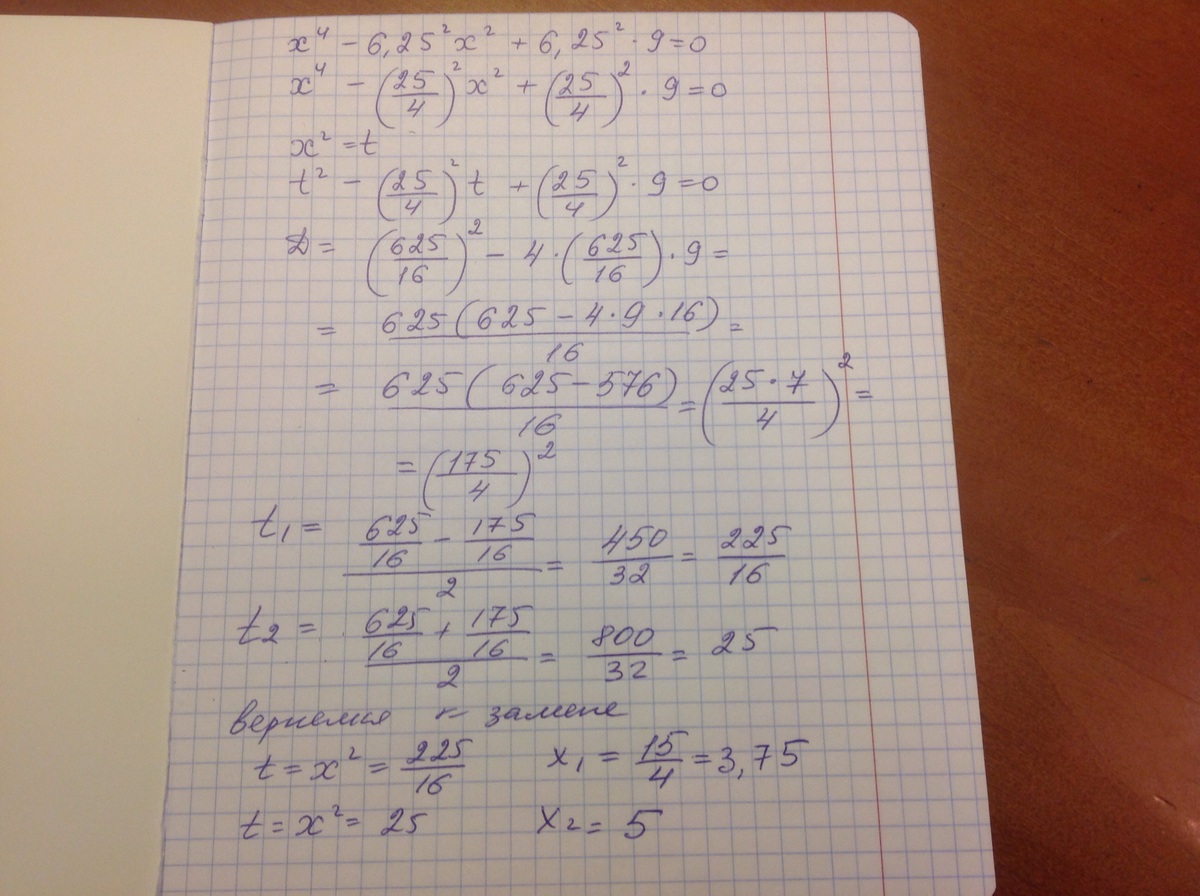 x⁴ − 6,25²x² + 6,25² · 9 = 0
x⁴ − (25/4)² x² + (25/4)² · 9 = 0
x² = t
t² − (25/4)² t + (25/4)² · 9 = 0
D = (625/16)² − 4 · (625/16) · 9 =
= 625(625 − 4 · 9 · 16)/16 =
= 625(625 − 576)/16 = (25 · 7/4)² =
= (175/4)²
t₁ = (625/16 − 175/16)/2 = 450/32 = 225/16
t₂ = (625/16 + 175/16)/2 = 800/32 = 25
вернемся к замене
t = x² = 225/16 x₁ = 15/4 = 3,75
t = x² = 25 x₂ = 5